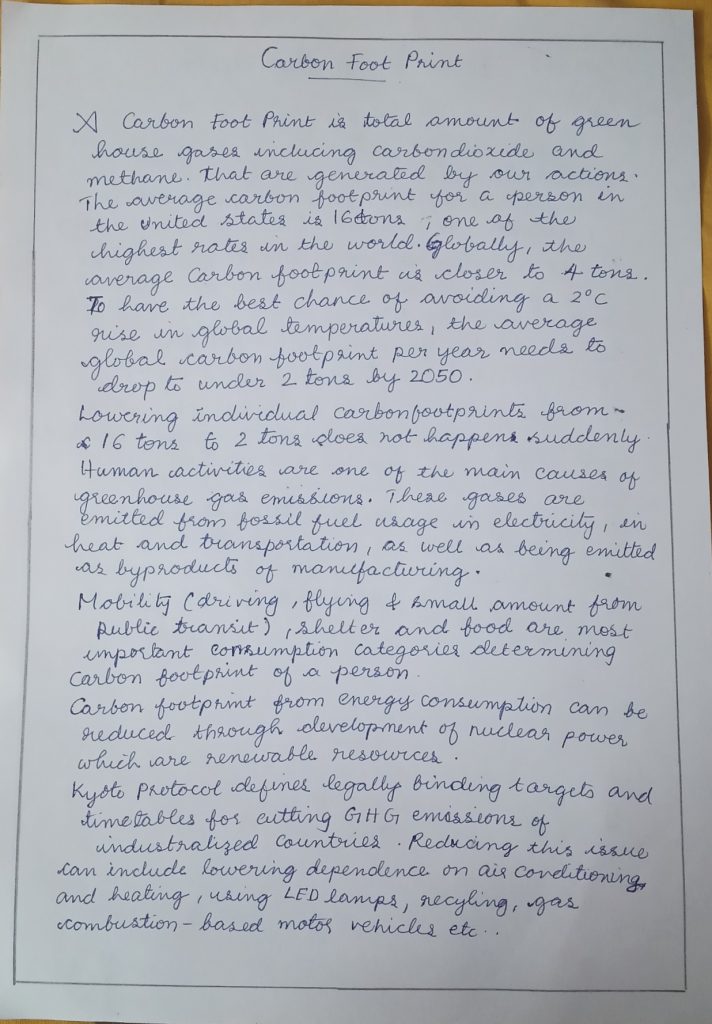 Carbon Foot Print
A Carbon Foot Print is total amount of green
house gases including carbondioxide and
methane. That are generated by our actions.
The average carbon footprint for a person in
the united states is 16 tons, one of the
highest rates in the world. Globally, the
average Carbon footprint is closer to 4 tons.
To have the best chance of avoiding a 2°C
rise in global temperatures, the average
global carbon footprint per year needs to
drop to under 2 tons by 2050.
Lowering individual carbonfootprints from
16 tons to 2 tons does not happens suddenly.
Human activities are one of the main causes of
greenhouse gas emissions. These gases are
emitted from fossil fuel usage in electricity, in
heat and transportation, as well as being emitted
as byproducts of manufacturing.
Mobility (driving, flying & small amount from
public transit), shelter and food are most
important consumption categories determining
Carbon footprint of a person.
Carbon footprint from energy consumption can be
reduced through development of nuclear power
which are renewable resources.
Kyoto Protocol defines legally binding targets and
timetables for cutting GHG emissions of
industralized countries. Reducing this issue
can include lowering dependence on air conditioning
and heating, using LED lamps, recyling, gas
combustion-based motor vehicles etc..